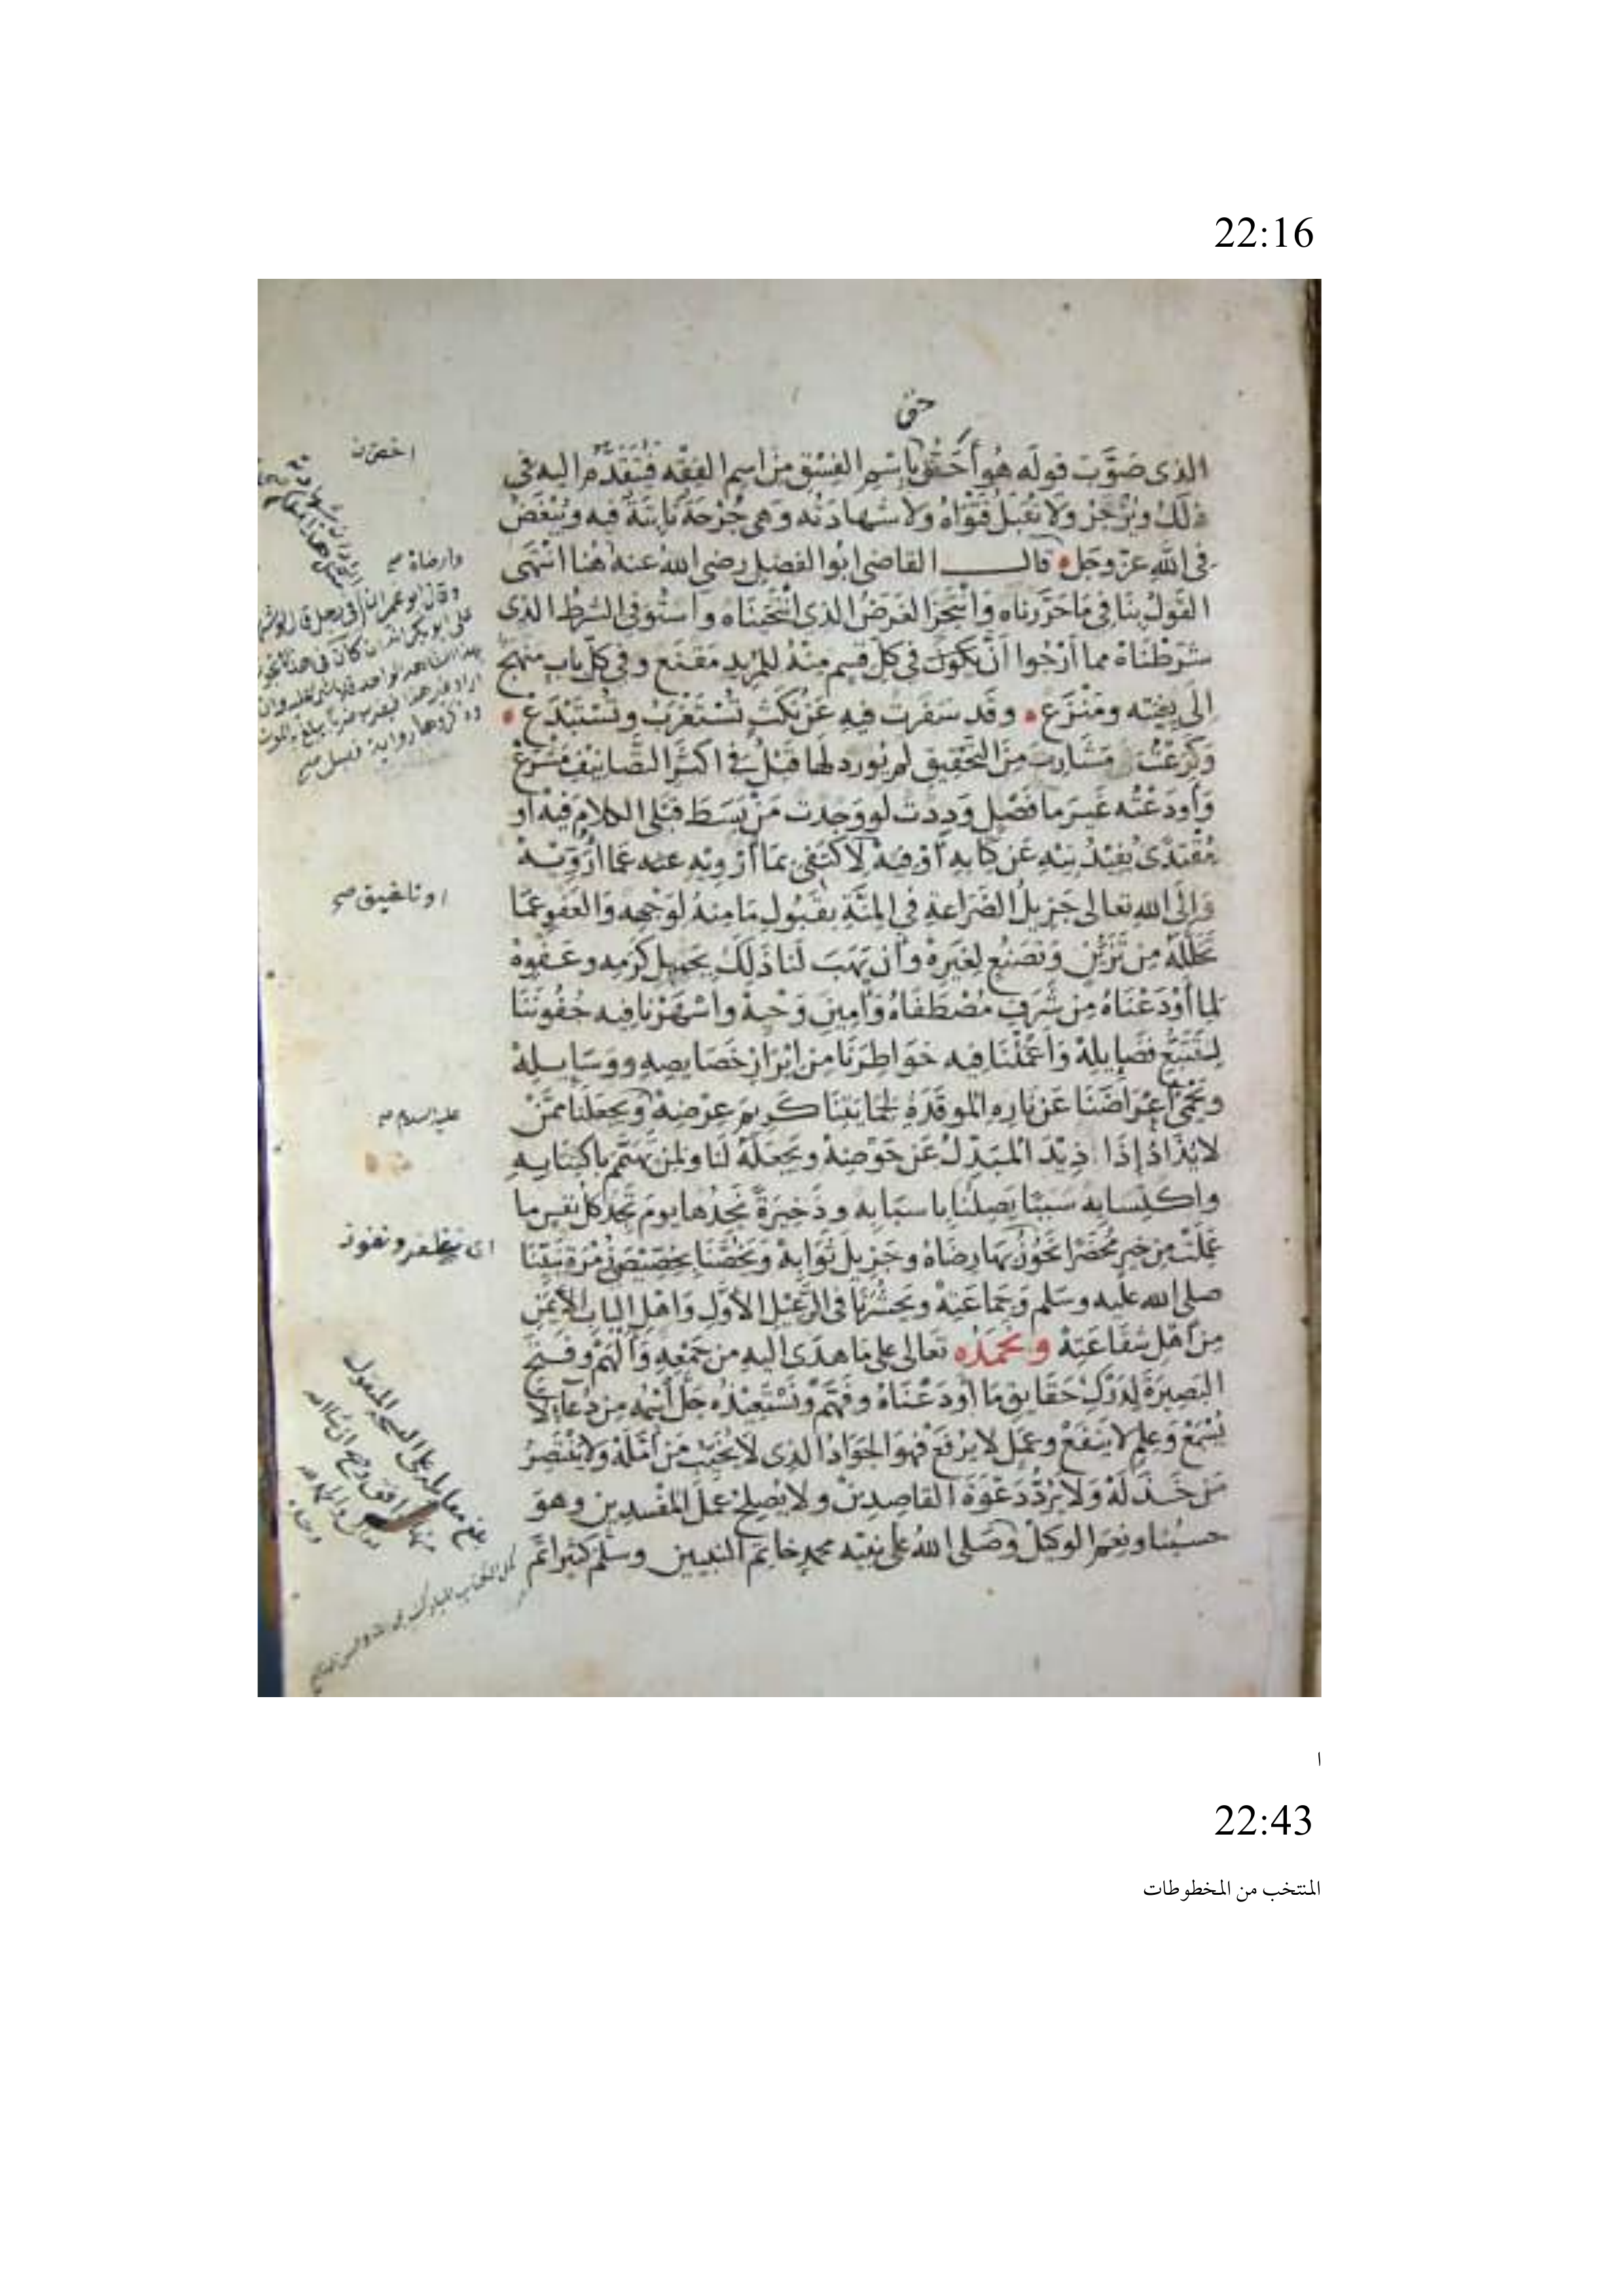 22:16
حق
الذى صوّب قوله هو أحقّ باسْمِ الفِسْقِ مِنَ اسمِ الفِقْه فيُتَقدَّم اليه فى
ذلك ويُزْجَرْ ولا تُقبَلُ فَتْوَاهُ ولا شهادَتُه وَهى جُرْحَةٌ ثابِتَةٌ فيه ويُبْغَضُ
فى اللهِ عزّ وجَل قال القاضى ابُوا الفضل رضى اللهُ عنه هُنا انْتَهى
القَولُ بنَا فى مَا حَرَّرناه وَانْتَجَزَ الغَرَضُ الذى انْتَحَيْنَاه واسْتُوفى الشرطُ الذى
شَرَطْنَاهُ مما أرْجُوا أنْ يكونَ فى كلّ قِسمٍ مِنهُ للمُرِيدِ مَقْنَع وفى كلّ بابٍ منهج
إلَى بِغْيَتِه ومَنْزَع وقَد سَفَرتُ فيهِ عَنْ نُكَتٍ تُسْتَغرَبُ وتُسْتَبْدَع
وَكَرَعْتُ مَشَاربَ مِنَ التحْقِيقِ لم يُورد لهَا قَبْلُ فى اكثَرِ التَّصَانيفِ مَشْرَعْ
وَأودَعْتُه غَيرَ ما فَصْلٍ وَدِدْتُ لو وَجدتُ مَنْ بَسَطَ قبْلى الكلامَ فيهُ او
مُقْتدًى يُفِيدُنِيْهِ عَن كِتابِهِ أوْ فِيْهْ لاكتَفِى بمَا أرْوِيْهِ عنه عَمّا أُرَوّيه
وَإلَى اللهِ تعالى جَزيلُ الضَّرَاعَةِ فى المِنّةِ بقَبُولِ مَا مِنهُ لِوَجْهِه وَالعَفْوِ عَمَّا
تخلّلَهُ مِن تَزيُّنٍ وَتَصَنُّعٍ لغَيْرِهْ وأن يَهَبَ لنا ذلِكَ بجَميلِ كَرَمِه وعَفْوِهْ
لِما أوْدَعْنَاهُ مِن شَرَفِ مُصْطَفَاهُ وَأمِينِ وَحْيِهْ واسْهَرْنا فيه جُفُونَنَا
لِتَتَبُّعِ فَضَايِلِهْ وَأعْمَلْنَا فيه خوَاطِرَنَا مِن ابْرَازِ خَصَايِصِه ووَسَايِلِهْ
وَيَحْمِىَ أعْرَاضَنَا عَن نارِهِ المُوقَدَةِ لِحمَايَتِنَا كَرِيمَ عِرْضِهْ ويَجعَلَنا ممَّنْ
لا يُذادُ إذَا ذِيْدَ المُبَدِّلُ عَن حَوْضِهْ ويَجعَلَهُ لَنا ولمن تَهَمَّمَ باكتِتَابِهِ
واكتِسَابِه سَبَبًا يَصِلُنَا باسبَابِه وذَخِيرَةً نَجِدُها يومَ تَجدُ كلُّ نفسٍ ما
عَمِلَتْ مِن خيرٍ مُحضَرًا نَحُوزُ بهَا رِضَاهُ وجَزِيلَ ثَوَابِهْ وَيَخُصَّنَا بخِصّيْصَى زُمْرَةِ نَبِيّنَا
صلى الله عليه وسَلم وَجَمَاعَتِهْ ويَحشُرَنَا فى الرَّعِيْلِ الأوّلِ وَاهْلِ البابِ الأيمَنِ
مِن أهْلِ شفاعَتِهْ ونحمَدُه تَعَالى على مَا هدَى اليه من جَمْعِهِ وَأَلْهَمْ وفَتَحَ
البَصِيرَةَ لِدَرْكِ حَقَايِقِ مَا أودَعْنَاهُ وفَهَّمْ وَنَسْتَعِيْذُه جَلّ اسْمُه مِن دُعَاءٍ لا
يُسْمَعْ وَعِلمٍ لا ينفَعْ وعَمَلٍ لا يُرْفَعْ فهُوَ الجَوَادُ الذى لا يُخَيِّبُ مَنْ أمّلَهْ ولا ينْتَصِرُ
مَن خَذَلَهْ وَلا يَرُدُّ دَعْوَةَ القاصِدِينْ ولا يُصْلِحُ عمَلَ المُفسِدِينِ وهوَ
حَسبُنا ونِعمَ الوكيلْ وصَلى اللهُ على نبيّه محمدٍ خاتمِ النبيين وسَلّم كثيرا تمّ
وارضاه صح
عليه السلام صح
22:43
المنتخب من المخطوطات